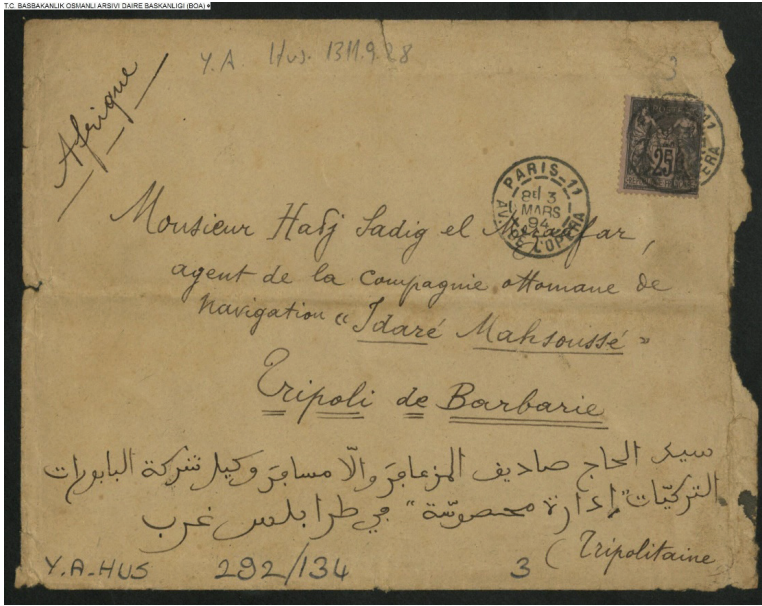 T.C. BASBAKANLIK OSMANLI ARSIVI DAIRE BASKANLIGI (BOA)
Y.A Hus. 1311.9.28
3
Afrique
25
PARIS_11
8E 3
MARS
94
AV. DE L'OPERA
Monsieur Hadj Sadig el
agent de la Compagnie ottomane de
navigation « Idaré Mahsoussé »
Tripoli de Barbarie
سيد الحاج صاديف المزعافر والّا مسافر وكيل شركة البابورات
التركيّات "إدارة محصوسّة" في طرابلس غرب
(Tripolitaine
Y.A-HUS 292/134 3